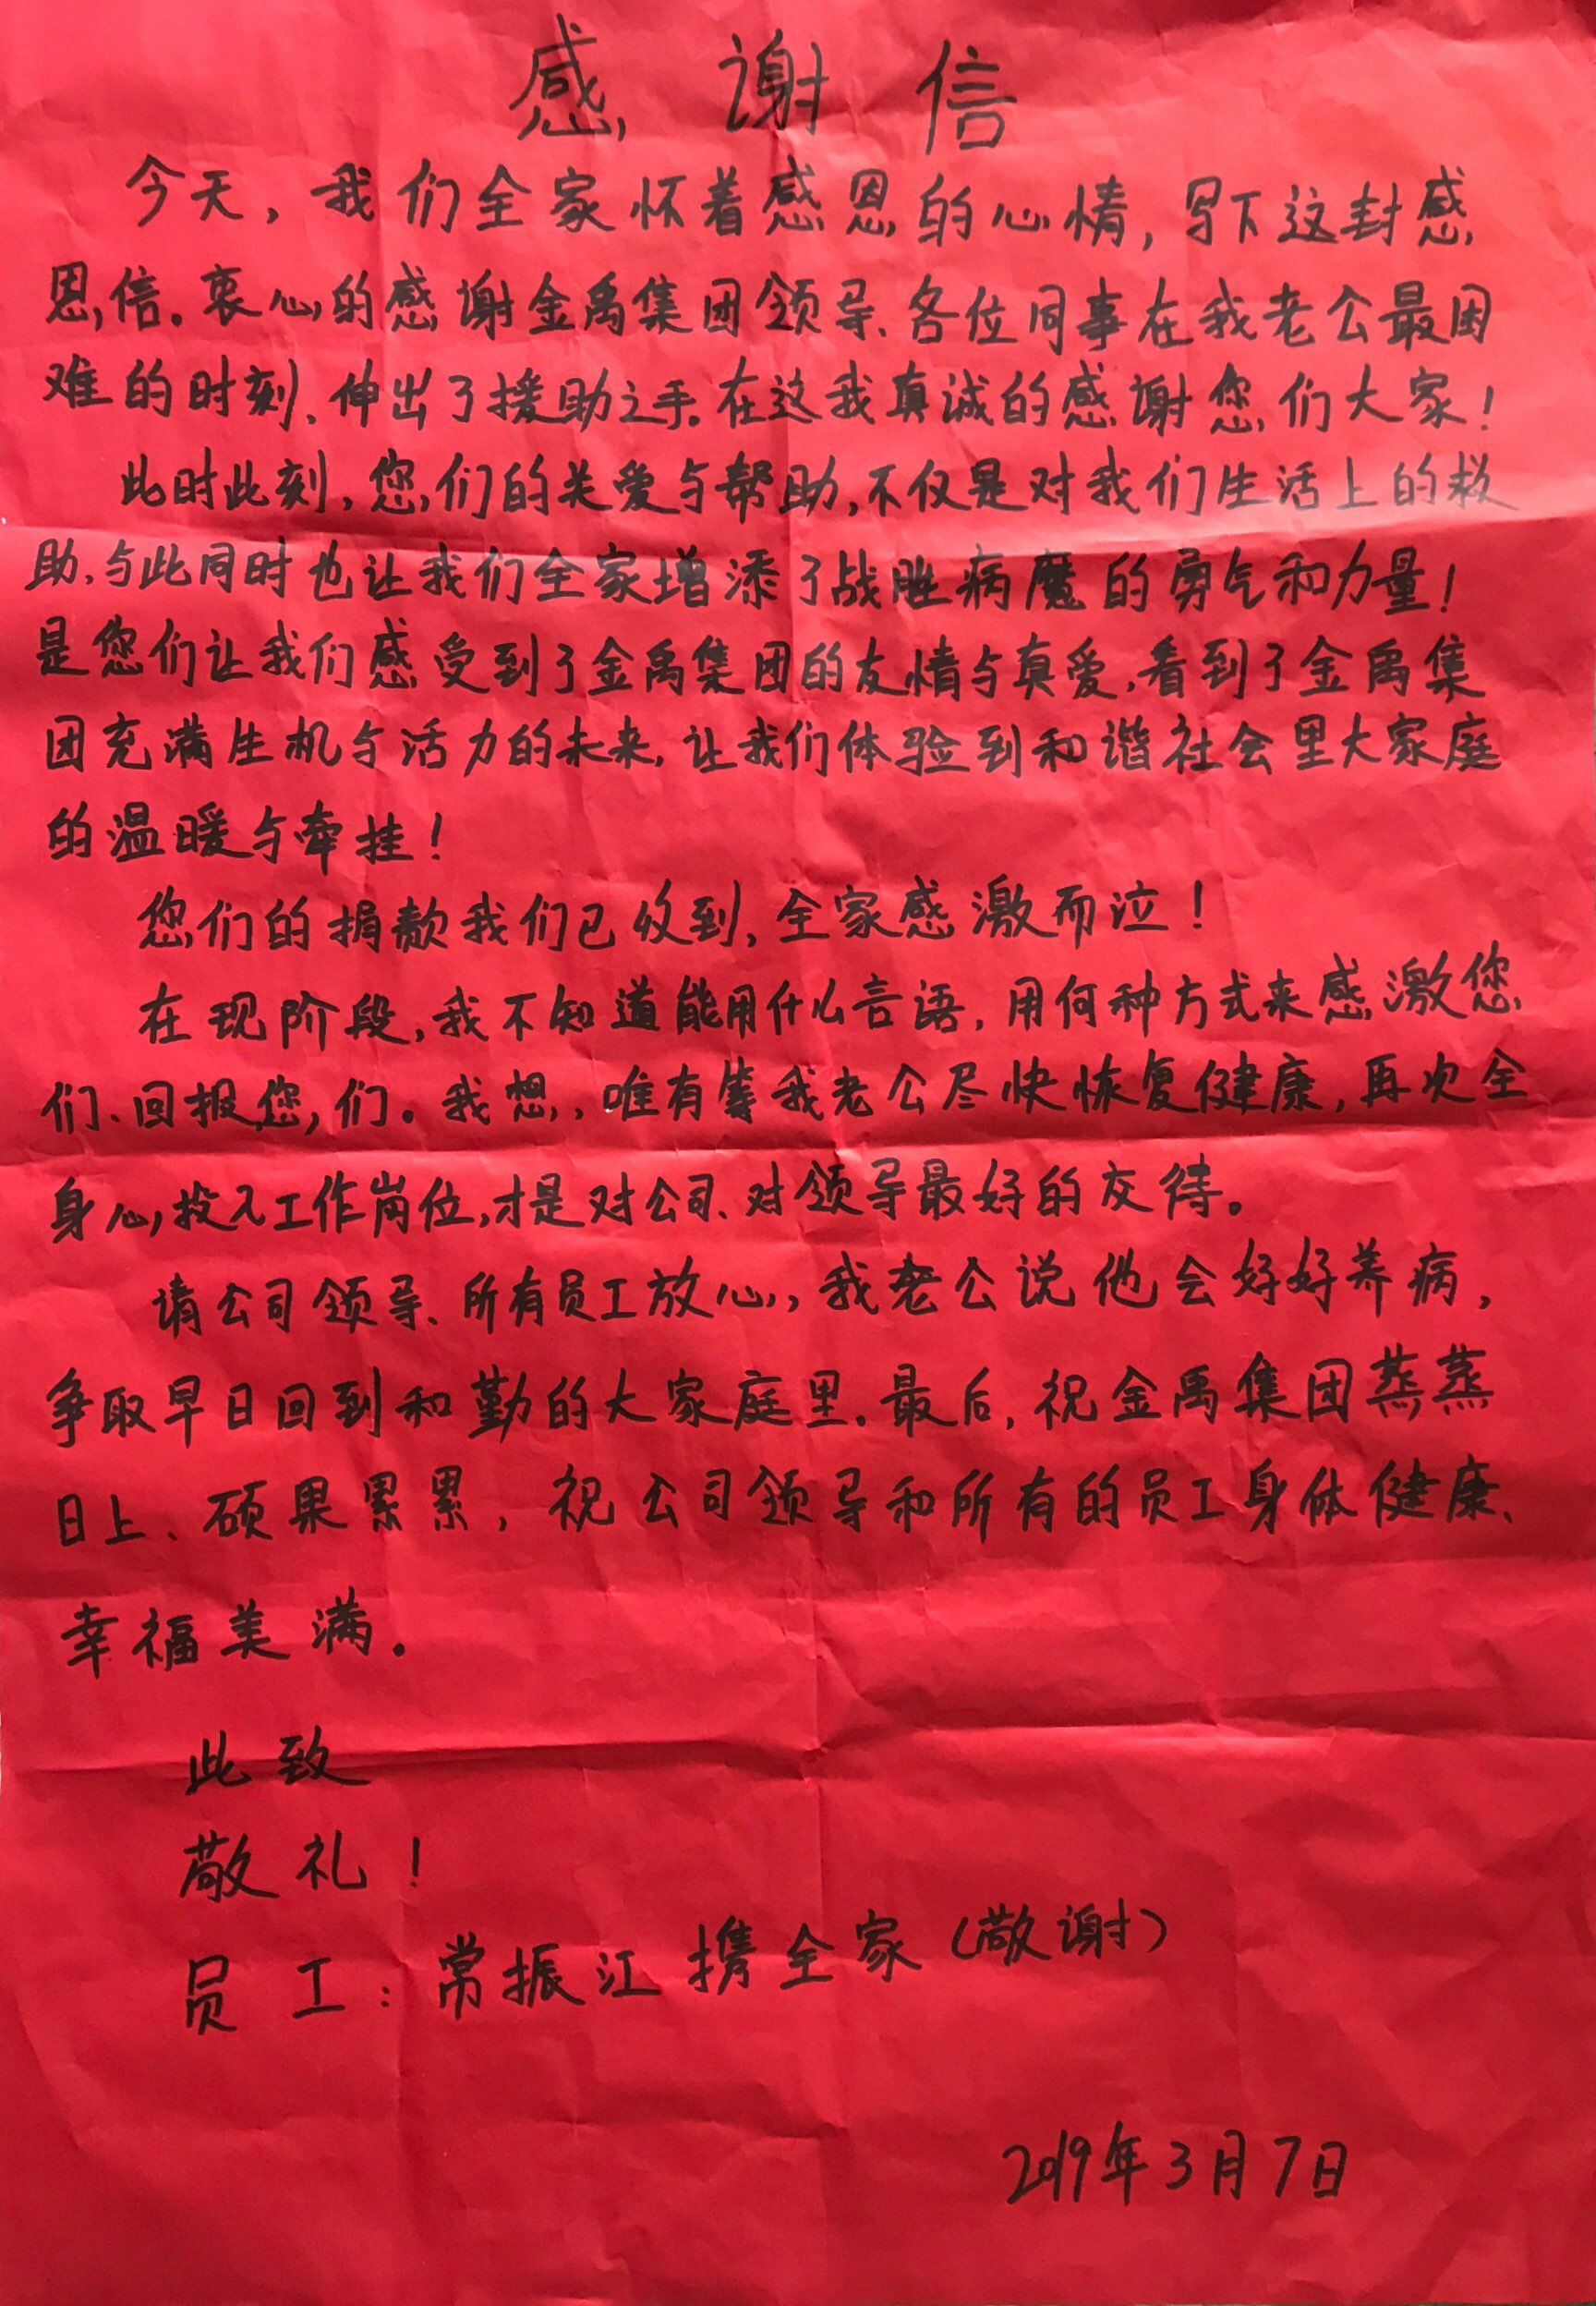 感谢信
今天，我们全家怀着感恩的心情，写下这封感
恩信。衷心的感谢金禹集团领导、各位同事在我老公最困
难的时刻、伸出了援助之手。在这我真诚的感谢您们大家！
此时此刻，您们的关爱与帮助，不仅是对我们生活上的救
助、与此同时也让我们全家增添了战胜病魔的勇气和力量！
是您们让我们感受到了金禹集团的友情与真爱，看到了金禹集
团充满生机与活力的未来，让我们体验到和谐社会里大家庭
的温暖与牵挂！
您们的捐款我们已收到，全家感激而泣！
在现阶段，我不知道能用什么言语，用何种方式来感激您
们、回报您们。我想，唯有等我老公尽快恢复健康，再次全
身心投入工作岗位，才是对公司、对领导最好的交待。
请公司领导、所有员工放心，我老公说他会好好养病，
争取早日回到和勤的大家庭里。最后，祝金禹集团蒸蒸
日上、硕果累累，祝公司领导和所有的员工身体健康、
幸福美满。
此致
敬礼！
员工：常振江携全家（敬谢）
2019年3月7日